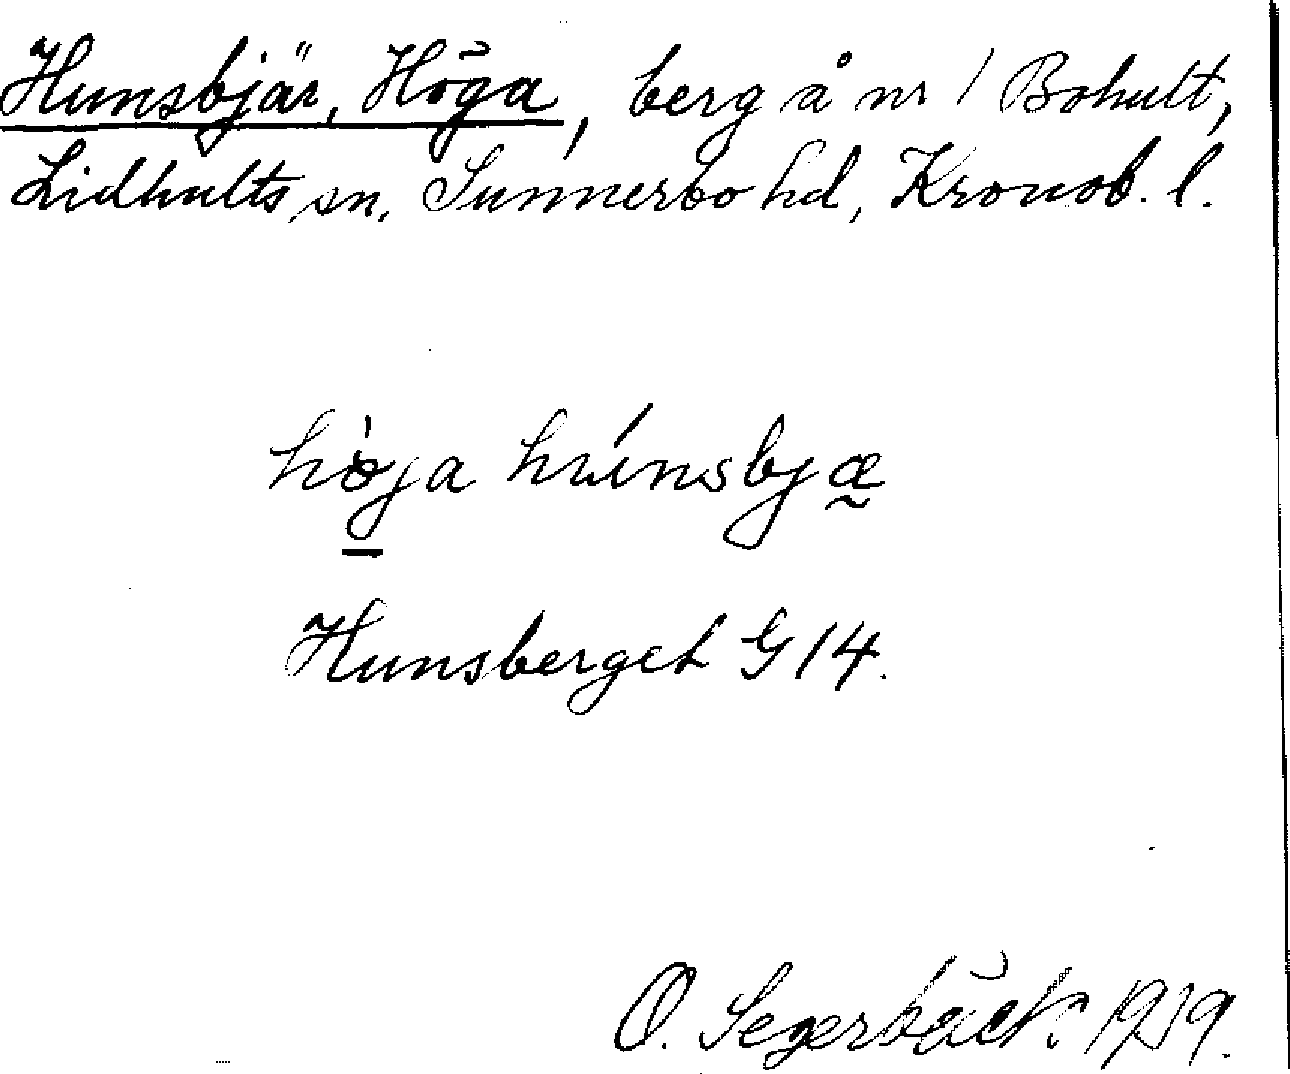 Hunsbjär, Höga, berg å nr 1 Bohult,
Lidhults sn. Sunnerbo hd, Kronob. l.
hö̀ja húnsbjæ̰
Hunsberget G 14.
O. Segerbäck. 1919.